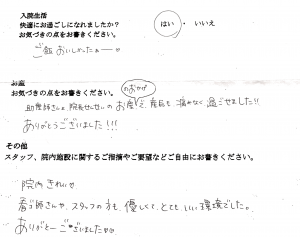 入院生活
快適にお過ごしになれましたか?
はい ・ いいえ
お気づきの点をお書きください。
ご飯おいしかったぁー♡
お産
お気づきの点をお書きください。
助産師さんと院長せんせいのおかげでお産も、産後も痛みなく過ごせました!!
ありがとうございました!!!
その他
スタッフ、院内施設に関するご指摘やご要望などご自由にお書きください。
院内きれい♡
看ゴ師さんや、スタッフの方も、優しくて、とてもいい環境でした。
ありがとーございました♡♡